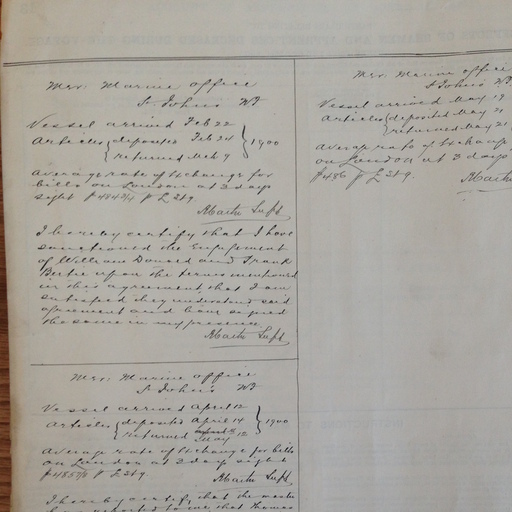 Mer: Marine office
St John's NF
Vessel arrived Feb 22
Articles { deposited Feb 24 } 1900
{ returned Mch 9
Average rate of Exchange for
bills on London at 3 days
sight $ 484 3/4 P £ Stg.
Supt
I hereby certify that I have
sanctioned the Engagement
of William Donald and Frank
Bertie upon the terms mentioned
in this agreement that I am
satisfied they understand said
agreement and have signed
the same in my presence.
Supt
Mer: Marine office
St John's NF
Vessel arrived April 12
Articles { deposited April 14 } 1900
{ returned May 12
Average rate of Exchange for bills
on London at 3 days sight
$ P £ Stg.
Supt
I hereby certify that the master
has reported to me that Thomas
Mer: Marine office
St John's NF
Vessel arrived May 19
Articles { deposited May 21
{ returned May
Average rate of Exchange
on London at 3 days
$ 486 P £ Stg.